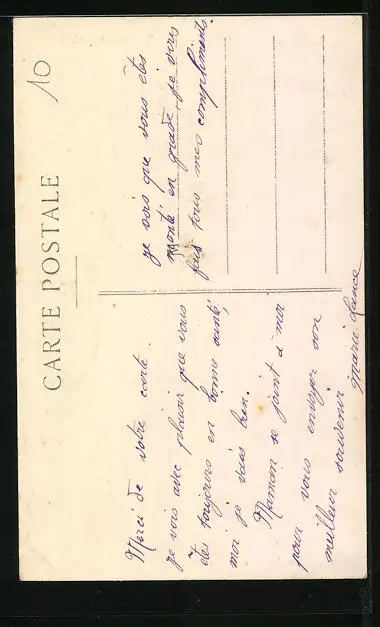 10
CARTE POSTALE
Merci de votre carte.
je vois avec plaisir que vous
êtes toujours en bonne santé,
moi je vais bien.
Maman se joint à moi
pour vous envoyer son
meilleur souvenir
Marie
je vois que vous êtes
monté en grade, je vous
fais tous mes compliments.